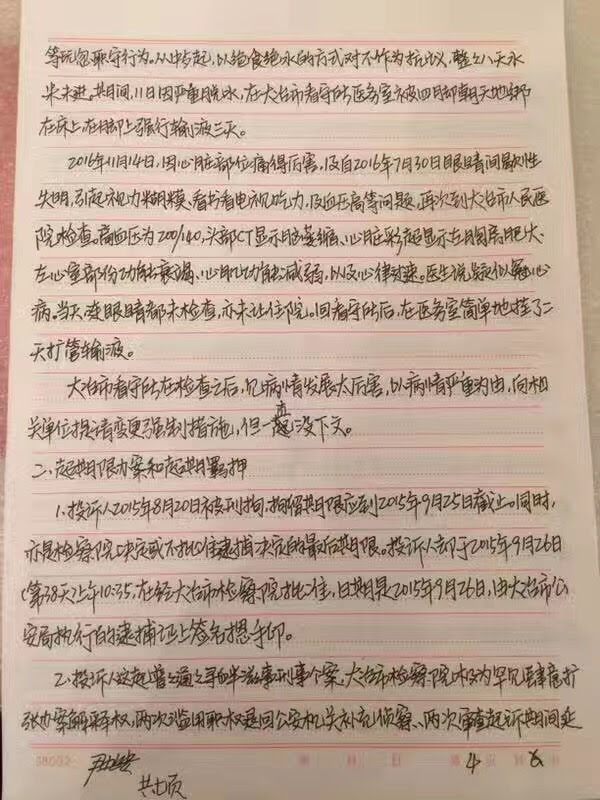 等玩忽职守行为。从中午起，以绝食绝水的方式对不作为抗议，整整八天水
米未进。其间，11日因严重脱水，在大冶市看守所医务室被四脚朝天地绑
在床上，在脚上强行输液三天。
2016年11月14日，因心脏部位痛得厉害，及自2016年7月30日眼睛间歇性
失明，引起视力模糊，看书看电视吃力，及血压高等问题，再次到大冶市人民医
院检查。高血压为200/140，头部CT显示脑萎缩、心脏彩超显示左心房肥大、
左心室部份功能衰竭、心肌功能减弱，以及心律过速。医生说疑似冠心
病。当天，连眼睛都未检查，亦未让住院。回看守所后，在医务室简单地挂了二
天扩管输液。
大冶市看守所在检查之后，见病情发展太厉害，以病情严重为由，向相
关单位提请变更强制措施，但一直没下文。
二、超期限办案和超期羁押
1、投诉人2015年8月20日被刑拘，拘留期限应到2015年9月25日截止。同时，
亦是检察院决定或不批准逮捕决定的最后期限。投诉人却于2015年9月26日
(第38天)上午10:35，在经大冶市检察院批准，日期是2015年9月26日，由大冶市公
安局执行的逮捕证上签名摁手印。
2、投诉人这起普普通通之寻衅滋事刑事个案，大冶市检察院极为罕见肆意扩
张办案解释权，两次滥用职权退回公安机关补充侦察、两次审查起诉期间延
第4页
共七页